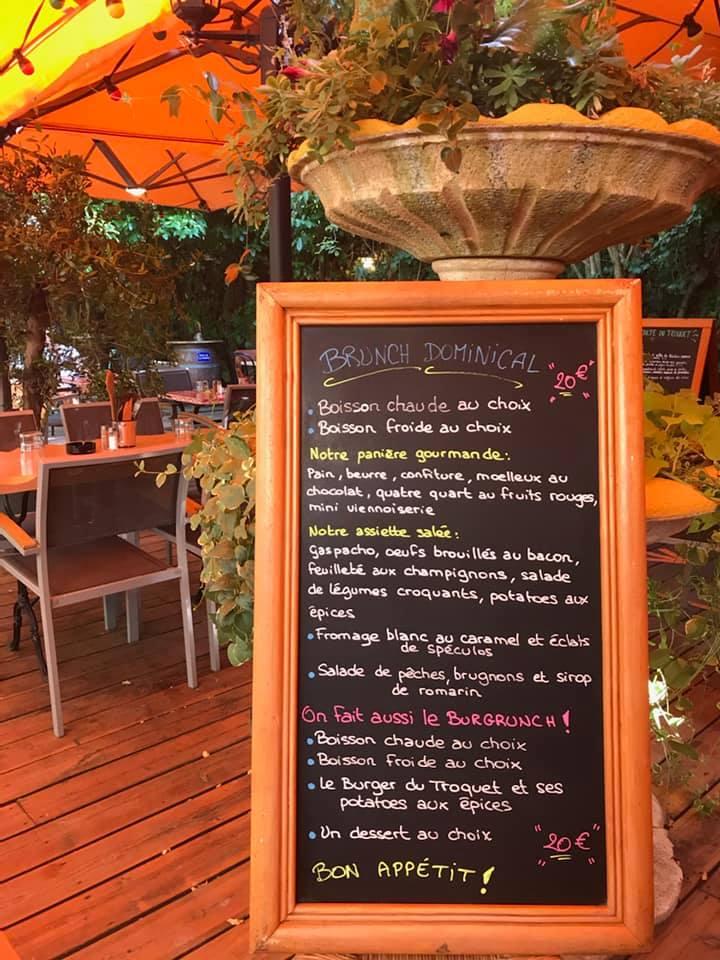 BRUNCH DOMINICAL
"20€"
Boisson chaude au choix
Boisson froide au choix
Notre panière gourmande:
Pain, beurre, confiture, moelleux au
chocolat, quatre quart au fruits rouges,
mini viennoiserie
Notre assiette salée:
gaspacho, oeufs brouillés au bacon,
feuilleté aux champignons, salade
de légumes croquants, potatoes aux
épices
Fromage blanc au caramel et éclats
de spéculos
Salade de pêches, brugnons et sirop
de romarin
On fait aussi le BURGRUNCH!
Boisson chaude au choix
Boisson froide au choix
Le Burger du Troquet et ses
potatoes aux épices
Un dessert au choix
"20€"
BON APPÉTIT!